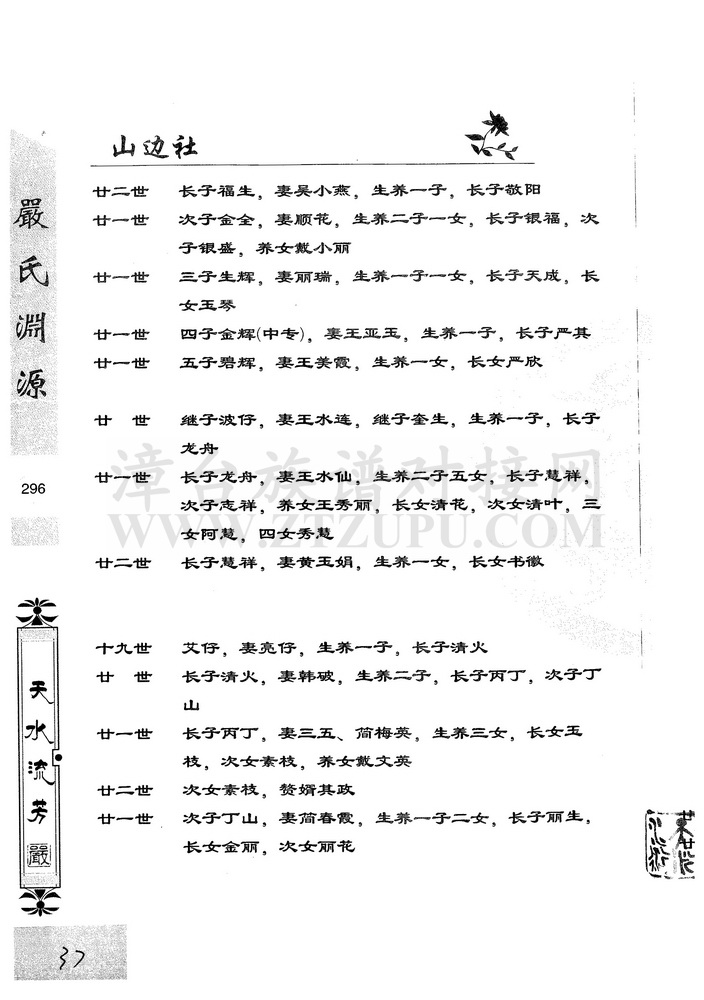 山边社
廿二世 长子福生，妻吴小燕，生养一子，长子敬阳
廿一世 次子金全，妻顺花，生养二子一女，长子银福，次
子银盛，养女戴小丽
廿一世 三子生辉，妻丽瑞，生养一子一女，长子天成，长
女玉琴
廿一世 四子金辉(中专)，妻王亚玉，生养一子，长子严其
廿一世 五子碧辉，妻王美霞，生养一女，长女严欣
廿 世 继子波仔，妻王水连，继子奎生，生养一子，长子
龙舟
廿一世 长子龙舟，妻王水仙，生养二子五女，长子慧祥，
次子志祥，养女王秀丽，长女清花，次女清叶，三
女阿慧，四女秀慧
廿二世 长子慧祥，妻黄玉娟，生养一女，长女书徽
十九世 艾仔，妻亮仔，生养一子，长子清火
廿 世 长子清火，妻韩破，生养二子，长子丙丁，次子丁
山
廿一世 长子丙丁，妻三五、简梅英，生养三女，长女玉
枝，次女素枝，养女戴文英
廿二世 次女素枝，赘婿其政
廿一世 次子丁山，妻简春霞，生养一子二女，长子丽生，
长女金丽，次女丽花
嚴氏淵源
296
天水流芳
嚴
37
漳台族谱对接网
WWW.ZTZUPU.COM